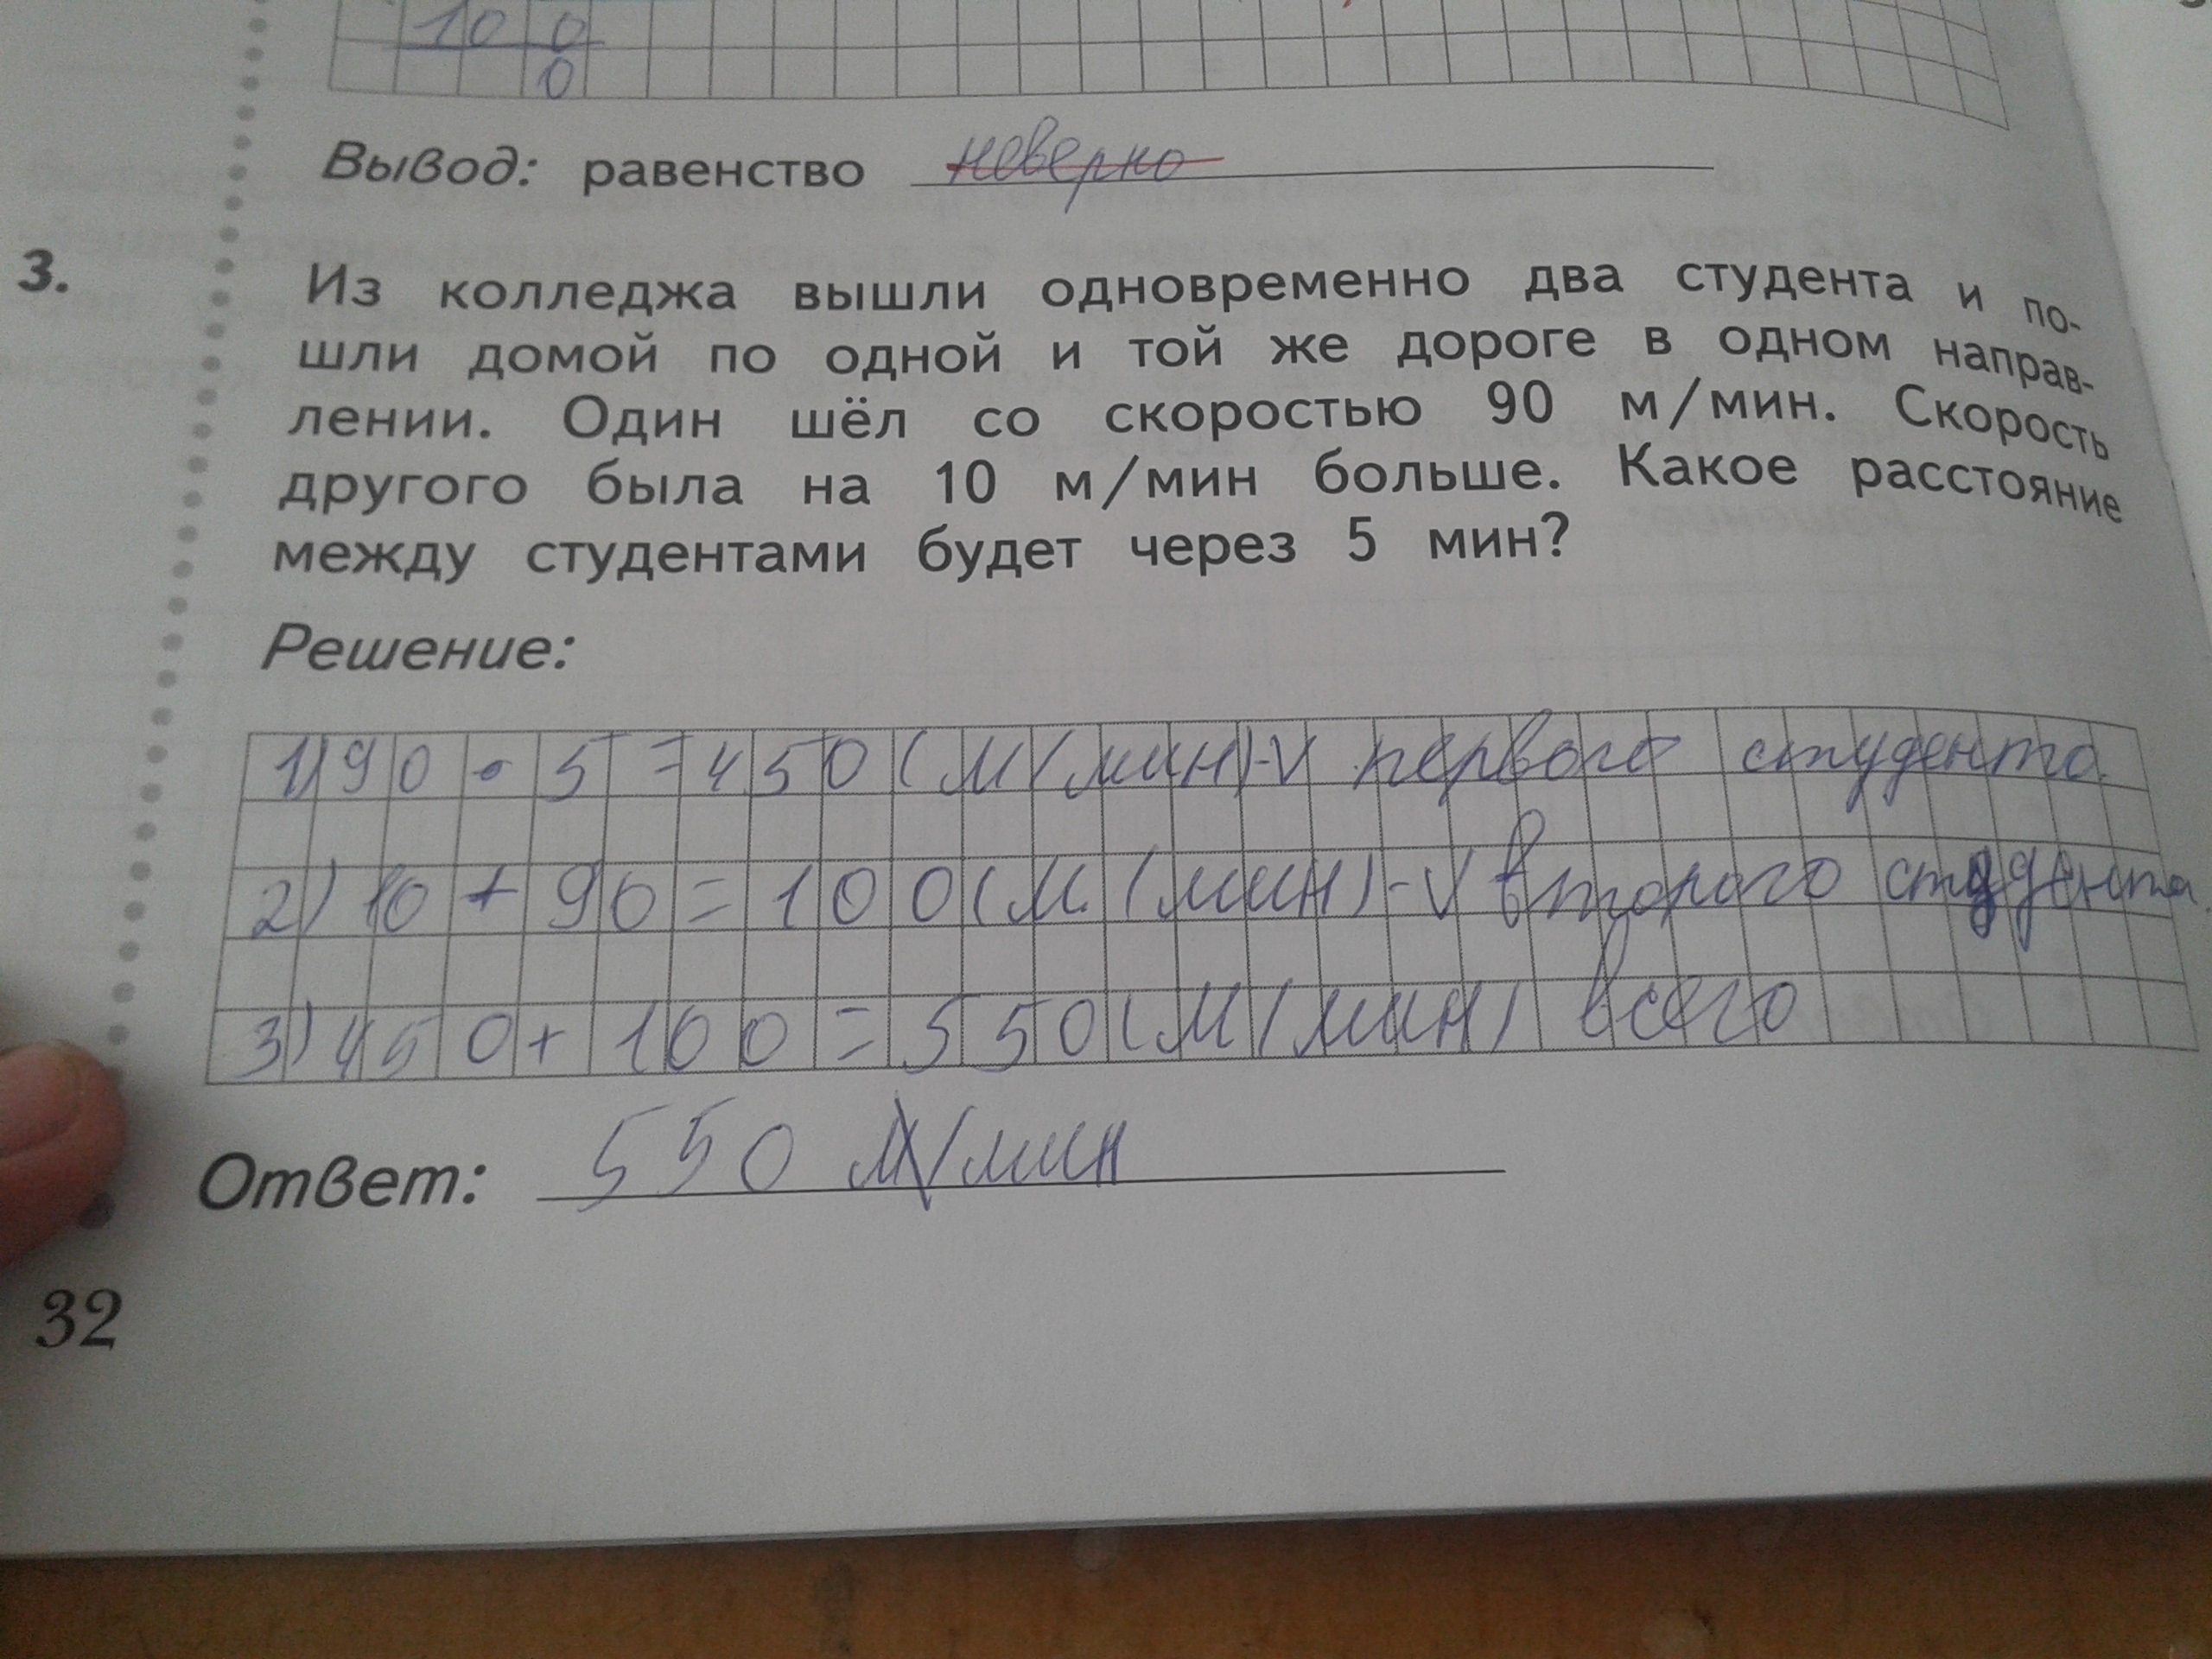 10 0
0
Вывод: равенство неверно
3. Из колледжа вышли одновременно два студента и по-
шли домой по одной и той же дороге в одном направ-
лении. Один шёл со скоростью 90 м/мин. Скорость
другого была на 10 м/мин больше. Какое расстояние
между студентами будет через 5 мин?
Решение:
1) 90 · 5 = 450 (м/мин) - v первого студента.
2) 10 + 90 = 100 (м/мин) - v второго студента.
3) 450 + 100 = 550 (м/мин) всего
Ответ: 550 м/мин
32